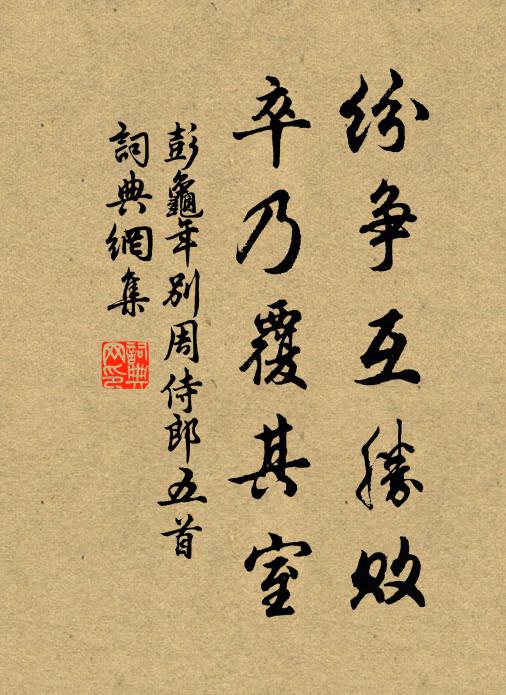 纷争互勝敗
卒乃覆其室
彭龜年别周侍郎五首
詞典網集
詞典網印